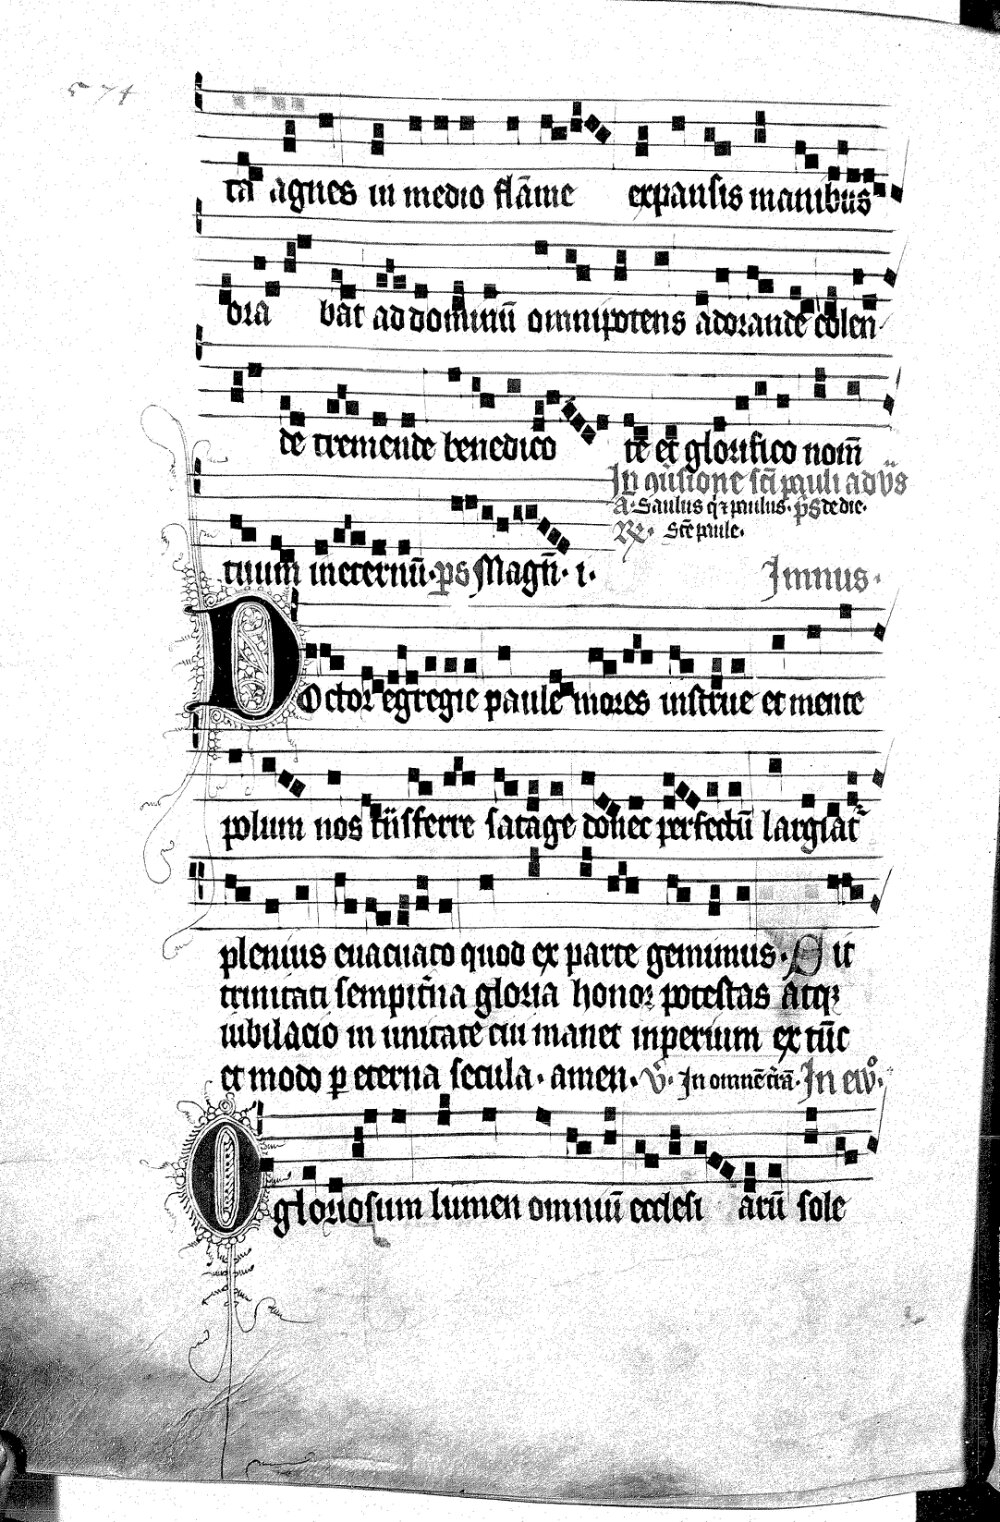 574
ta agnes in medio flāme expansis manibus
ora bat ad dominū omnipotens adorande colen
de tremende benedico te et glorifico nom̄
In ꝯūsione sc̄i pauli ad vs̄
A. Saulus q̄ ⁊ paulus. ps̄ de die.
tuum ineternū. ps Magn̄. i.
RX. Sc̄e paule.
Imnus.
Doctor egregie paule mores instrue et mente
polum nos trās̄ferre satage donec perfectū largiat᷑
plenius euacuato quod ex parte gerimus. Sit
trinitati sempit̄na gloria honor potestas atqꝫ
iubilacio in unitate cui manet inperium ex tūc
et modo p eterna secula. amen. V̄. In omnē t̄rā. In ew̄.
O gloriosum lumen omniū ecclesi arū sole